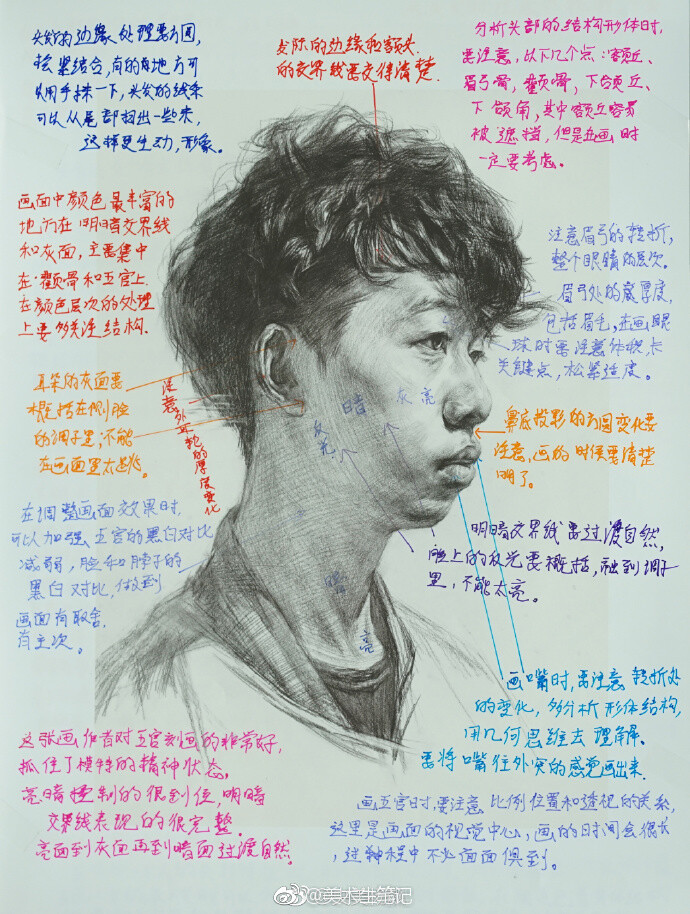 头发的边缘处理要方圆,
松紧结合,有的地方可
以用手抹一下,头发的线条
可以从尾部扫出一些来,
这样更生动,形象。
发际的边缘和额头
的交界线要交待清楚.
分析头部的结构形体时,
要注意,以下几个点:额丘、
眉弓骨,颧骨,下颌丘、
下颌角,其中额丘容易
被遮挡,但是在画时
一定要考虑。
画面中颜色最丰富的
地方在明暗交界线
和灰面,主要集中
在颧骨和五官上.
在颜色层次的处理
上要多关注结构.
注意眉弓的转折,
整个眼睛的层次。
眉弓处的底厚度,
包括眉毛,在画眼
球时要注意体积,长
关键点,松紧适度。
耳朵的灰面要
概括在侧脸
的调子里;不能
在画面里太跳。
注意外耳轮的厚度变化
暗
灰
亮
反光
鼻底投影的方圆变化要
注意,画的时候要清楚
明了。
在调整画面效果时,
可以加强五官的黑白对比
减弱,脸和脖子的
黑白对比,做到
画面有取舍.
有主次。
明暗交界线要过渡自然,
脸上的反光要概括,融到调子
里,不能太亮。
暗
亮
画嘴时,要注意转折处
的变化,多分析形体结构,
用几何思维去理解.
要将嘴往外突的感觉画出来.
这张画作者对五官刻画的非常好,
抓住了模特的精神状态.
亮暗控制的很到位,明暗
交界线表现的很完整.
亮面到灰面再到暗面过渡自然.
画五官时,要注意比例位置和透视的关系,
这里是画面的视觉中心,画的时间会很长
,过程中不必面面俱到。
@美术生笔记